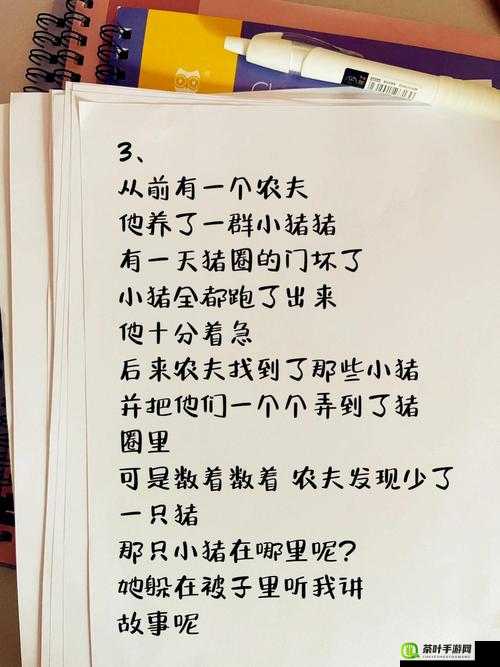 3、
从前有一个农夫
他养了一群小猪猪
有一天猪圈的门坏了
小猪全都跑了出来
他十分着急
后来农夫找到了那些小猪
并把他们一个个弄到了猪
圈里
可是数着数着 农夫发现少了
一只猪
那只小猪在哪里呢?
她躲在被子里听我讲
故事呢
茶叶手游网